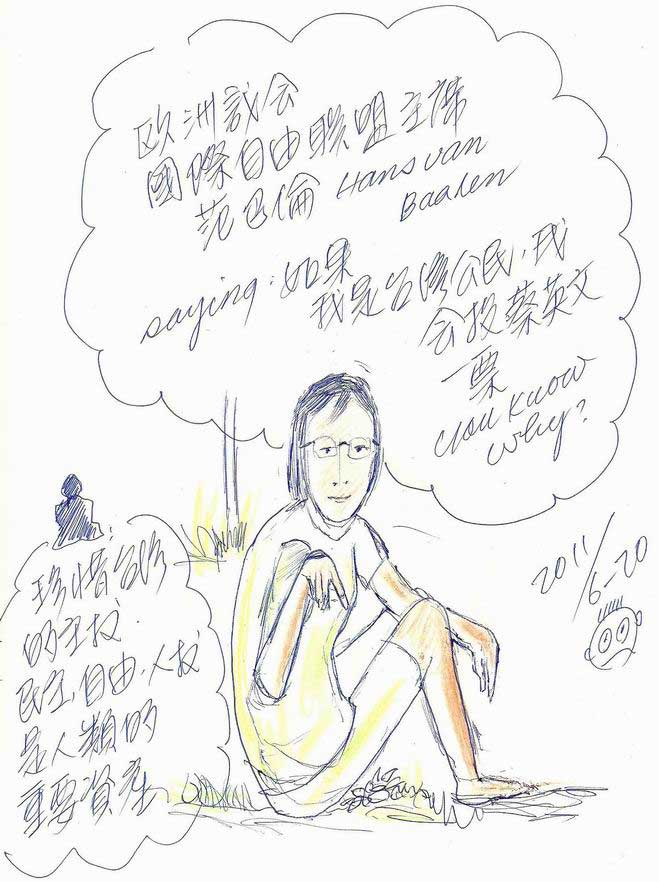 欧洲議会
國際自由聯盟主席
范巴倫 Hans van
Baalen
saying: 如果
我是台湾公民,我
会投蔡英文
一票
you know
why?
2011/6-20
珍惜台湾
的主权.
民主,自由,人权
是人類的
重要資產